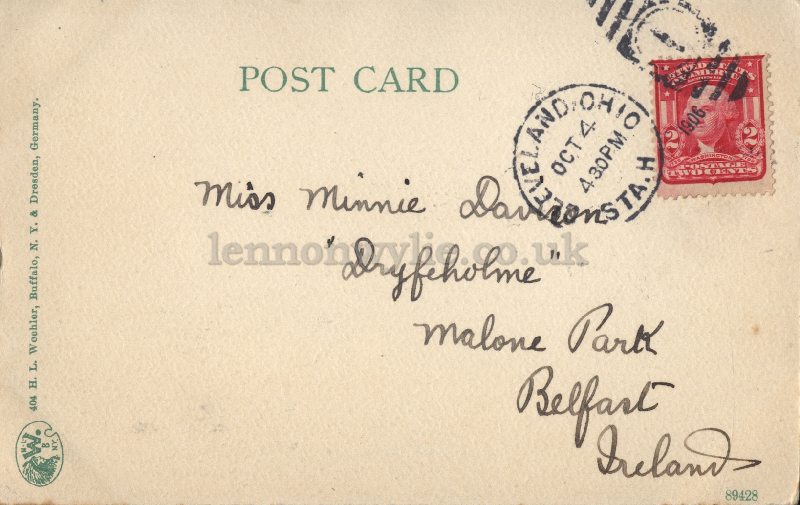 POST CARD
CLEVELAND, OHIO.
OCT 4
4-30PM
STA. H
1906
UNITED STATES
2 2
POSTAGE
TWO CENTS
Miss Minnie
lennonwylie.co.uk
"Dryfeholme"
Malone Park
Belfast
Ireland
404 H. L. Woehler, Buffalo, N. Y. & Dresden, Germany.
W.
89428